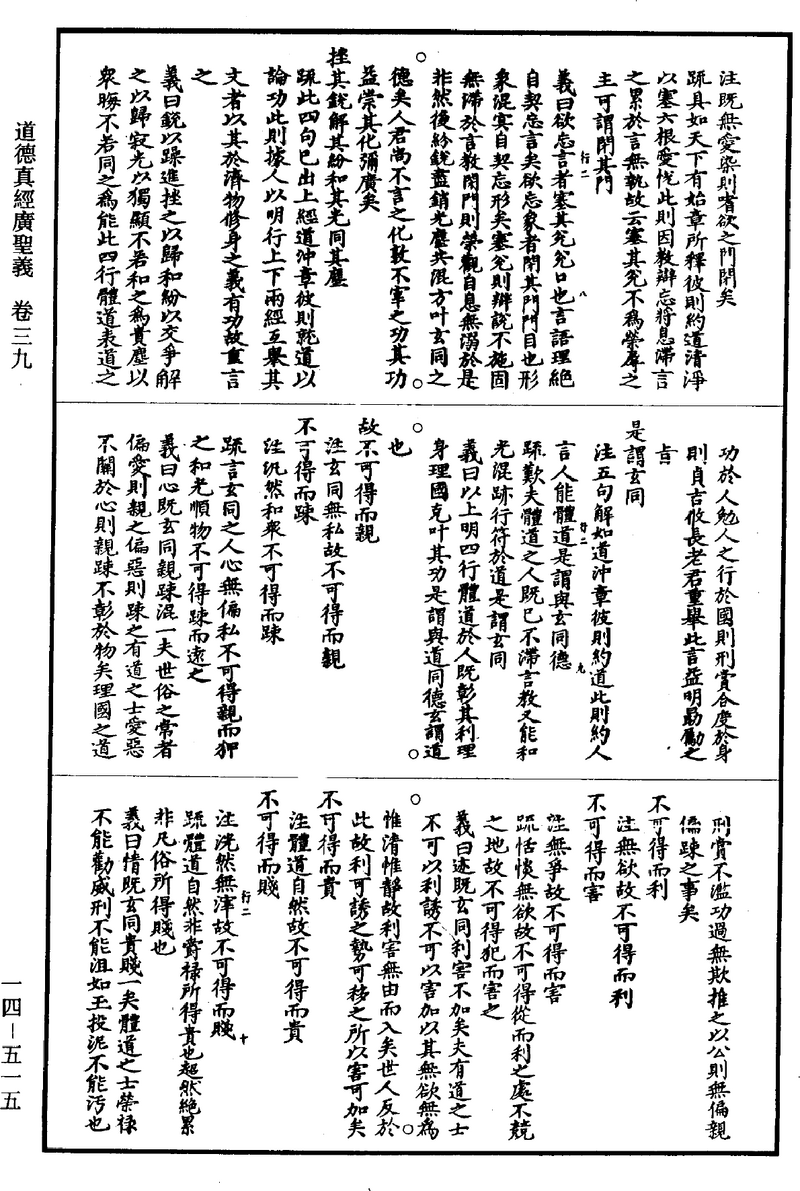 注既無愛染則嗜欲之門閉矣
疏具如天下有始章所釋彼則約道清淨
以塞六根愛悅此則因教辯忘將息滯言
之累於言無執故云塞其兌不為榮辱之
主可謂閉其門
義曰欲忘言者塞其兌兌口也言語理絕
自契忘言矣欲忘象者閉其門門目也形
象混冥自契忘形矣塞兌則辯說不施固
無滯於言教閉門則榮觀自息無溺於是
非然後紛銳盡銷光塵共混方叶玄同之
德矣人君尚不言之化敦不宰之功其功
益崇其化彌廣矣
挫其銳解其紛和其光同其塵
疏此四句巳出上經道沖章彼則就道以
論功此則據人以明行上下兩經互舉其
文者以其於濟物修身之義有功故重言
之
義曰銳以躁進挫之以歸和紛以交爭解
之以歸寂光以獨顯不若和之為貴塵以
衆晦不若同之為能此四行體道表道之
功於人勉人之行於國則刑賞合度於身
則貞吉攸長老君重舉此言益明勗勵之
旨
是謂玄同
注五句解如道沖章彼則約道此則約人
言人能體道是謂與玄同德
疏歎夫體道之人既巳不滯言教又能和
光混跡行符於道是謂玄同
義曰以上明四行體道於人既彰其利理
身理國克叶其功是謂與道同德玄謂道
也
故不可得而親
注玄同無私故不可得而親
不可得而踈
注汎然和衆不可得而踈
疏言玄同之人心無偏私不可得親而狎
之和光順物不可得踈而遠之
義曰心既玄同親踈混一夫世俗之常者
偏愛則親之偏惡則踈之有道之士愛惡
不關於心則親踈不彰於物矣理國之道
刑賞不濫功過無欺推之以公則無偏親
偏踈之事矣
不可得而利
注無欲故不可得而利
不可得而害
注無爭故不可得而害
疏恬惔無欲故不可得從而利之處不競
之地故不可得犯而害之
義曰迹既玄同利害不加矣夫有道之士
不可以利誘不可以害加以其無欲無為
惟清惟靜故利害無由而入矣世人反於
此故利可誘之勢可移之所以害可加矣
不可得而貴
注體道自然故不可得而貴
不可得而賤
注洸然無滓故不可得而賤
疏體道自然非爵祿所得貴也超然絕累
非凡俗所得賤也
義曰情既玄同貴賤一矣體道之士榮祿
不能勸威刑不能沮如玉投泥不能汚也
行二
八
行二
九
行二
十
道德真經廣聖義　卷三九
一四－五一五